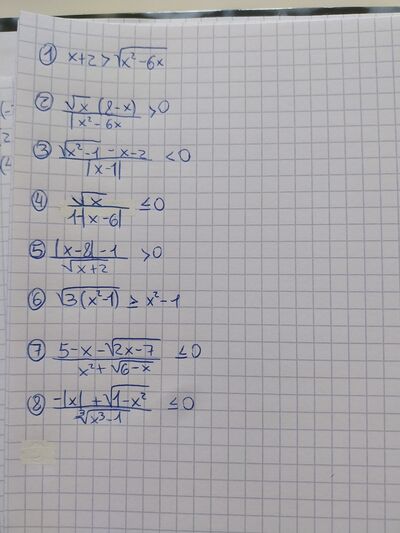 ① x+2 > √(x²-6x)
② √x (8-x) / |x²-6x > 0
③ (√(x²-1) -x-2) / |x-1| < 0
④ √x / (1-|x-6|) ≤ 0
⑤ (|x-8|-1) / √(x+2) > 0
⑥ √(3(x²-1)) ≥ x²-1
⑦ (5-x-√(2x-7)) / (x²+√(6-x)) ≤ 0
⑧ (-|x|+√(1-x²)) / ∛(x³-1) ≤ 0